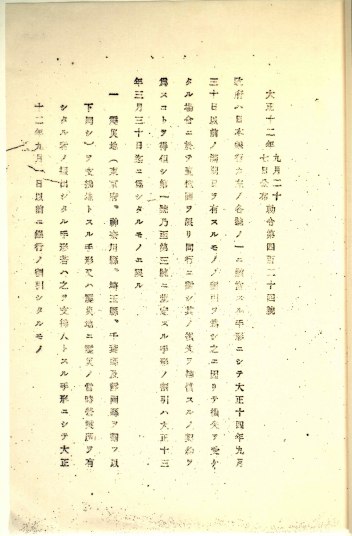 大正十二年九月二十七日公布勅令第四百二十四號
政府ハ日本銀行カ左ノ各號ノ一ニ該當スル手形ニシテ大正十四年九月
三十日以前ノ滿期日ヲ有スルモノノ割引ヲ爲シ之ニ因リテ損失ヲ受ケ
タル場合ニ於テ 同行ニ對シ其ノ損失ヲ補償スルノ契約ヲ
爲スコトヲ得但シ第一號乃至第三號ニ規定スル手形ノ割引ハ大正十三
年三月三十一日迄ニ爲シタルモノニ限ル
一 震災地(東京府、神奈川縣、埼玉縣、千葉縣及靜岡縣ヲ謂フ以
下同シ)ヲ支拂地トスル手形又ハ震災地ニ震災ノ當時營業所ヲ有
シタル者ノ振出シタル手形若ハ之ヲ支拂人トスル手形ニシテ大正
十二年九月一日以前ニ銀行ノ割引シタルモノ